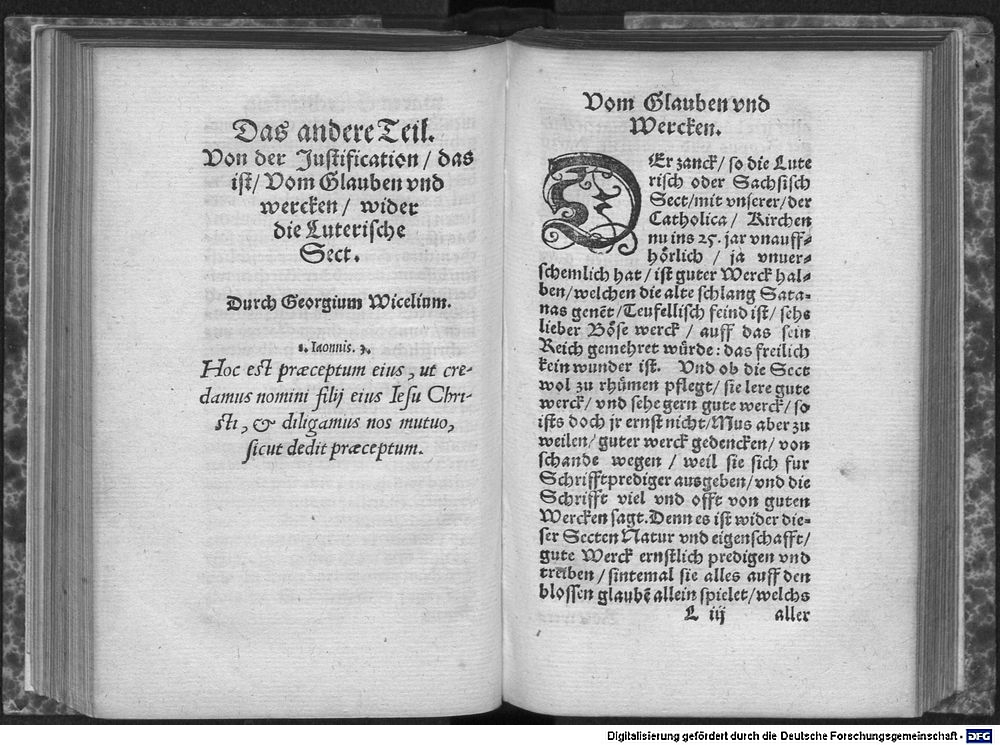 Das andere Teil.
Von der Justification / das
ist / Vom Glauben vnd
wercken / wider
die Luterische
Sect.
Durch Georgium Wicelium.
1. Iaonnis. 3.
Hoc est præceptum eius, ut cre-
damus nomini filij eius Iesu Chri-
sti, & diligamus nos mutuo,
sicut dedit præceptum.
Vom Glauben vnd
Wercken.
DEr zanck / so die Lute
risch oder Sachsisch
Sect / mit vnserer / der
Catholica / Kirchen
nu ins 25. jar vnauff-
hörlich / ja vnuer-
schemlich hat / ist guter Werck hal-
ben / welchen die alte schlang Sata-
nas genēt / Teufellisch feind ist / sehs
lieber Böse werck / auff das sein
Reich gemehret würde: das freilich
kein wunder ist. Vnd ob die Sect
wol zu rhümen pflegt / sie lere gute
werck / vnd sehe gern gute werck / so
ists doch jr ernst nicht / Mus aber zu
weilen / guter werck gedencken / von
schande wegen / weil sie sich fur
Schrifftprediger ausgeben / vnd die
Schrifft viel vnd offt von guten
Wercken sagt. Denn es ist wider die-
ser Secten Natur vnd eigenschafft /
gute Werck ernstlich predigen vnd
treiben / sintemal sie alles auff den
blossen glaubē allein spielet / welchs
L iij aller
Digitalisierung gefördert durch die Deutsche Forschungsgemeinschaft - DFG